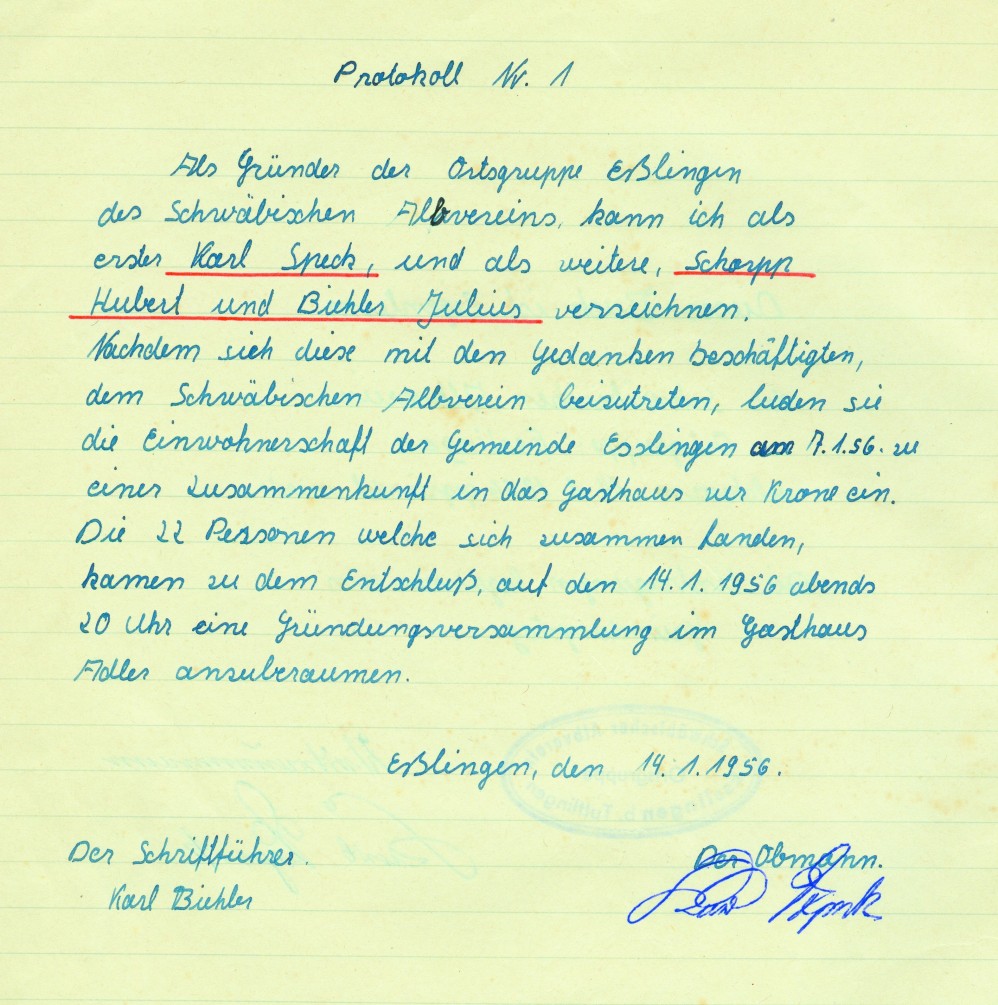 Protokoll Nr. 1
Als Gründer der Ortsgruppe Eßlingen
des Schwäbischen Albvereins, kann ich als
erster Karl Speck, und als weitere, Schorpp
Hubert und Biehler Julius verzeichnen.
Nachdem sich diese mit den Gedanken beschäftigten,
dem Schwäbischen Albverein beizutreten, luden sie
die Einwohnerschaft der Gemeinde Esslingen am 7.1.56. zu
einer Zusammenkunft in das Gasthaus zur Krone ein.
Die 22 Personen welche sich zusammen fanden,
kamen zu dem Entschluß, auf den 14.1.1956 abends
20 Uhr eine Gründungsversammlung im Gasthaus
Adler anzuberaumen.
Eßlingen, den 14.1.1956.
Der Schriftführer.
Karl Biehler
Der Obmann.